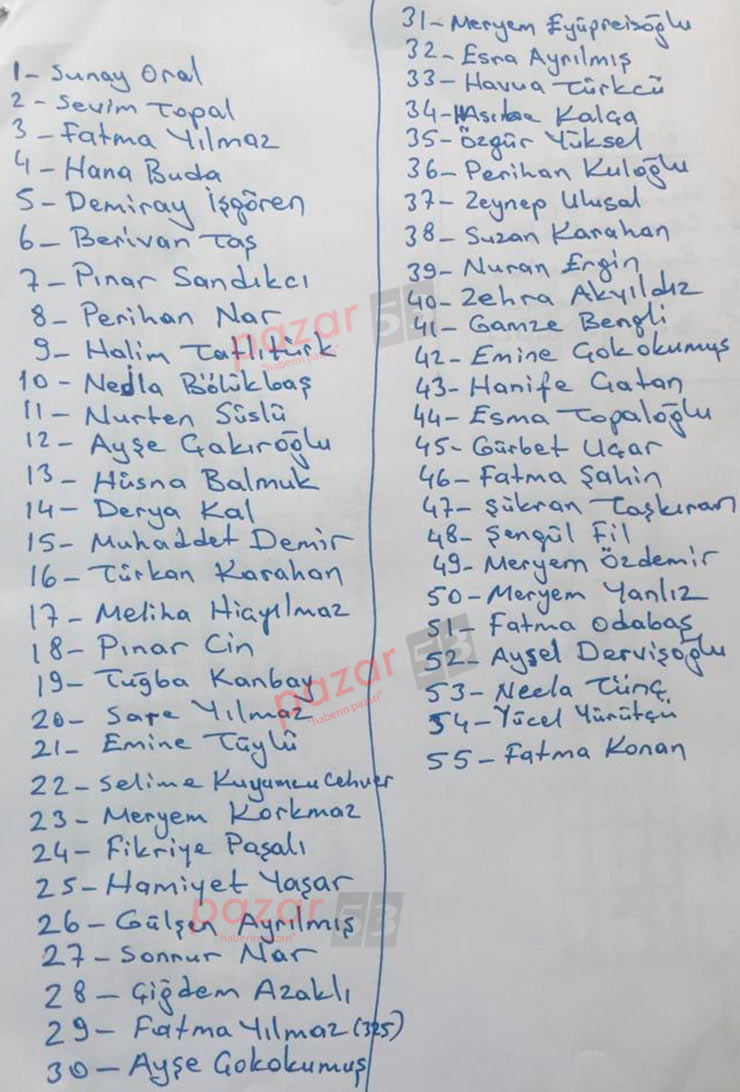 1- Sunay Oral
2- Sevim Topal
3- Fatma Yılmaz
4- Hana Buda
5- Demiray İşgören
6- Berivan Taş
7- Pınar Sandıkcı
8- Perihan Nar
9- Halim Tatlıtürk
10- Nedla Bölükbaş
11- Nurten Süslü
12- Ayşe Çakıroğlu
13- Hüsna Balmuk
14- Derya Kal
15- Muhaddet Demir
16- Türkan Karahan
17- Meliha Hiçyılmaz
18- Pınar Cin
19- Tuğba Kanbay
20- Sare Yılmaz
21- Emine Tüylü
22- Selime Kuyumcu Cehver
23- Meryem Korkmaz
24- Fikriye Paşalı
25- Hamiyet Yaşar
26- Gülşen Ayrılmış
27- Sonnur Nar
28- Çiğdem Azaklı
29- Fatma Yılmaz (325)
30- Ayşe Çokokumuş
31- Meryem Eyüpreisoğlu
32- Esra Ayrılmış
33- Havva Türkcü
34- Kalça
35- Özgür Yüksel
36- Perihan Kuloğlu
37- Zeynep Ulusal
38- Suzan Karahan
39- Nuran Ergin
40- Zehra Akyıldız
41- Gamze Bengli
42- Emine Çokokumuş
43- Hanife Çatan
44- Esma Topaloğlu
45- Gürbet Uçar
46- Fatma Şahin
47- Şükran Taşkıran
48- Şengül Fil
49- Meryem Özdemir
50- Meryem Yanlız
51- Fatma Odabaş
52- Aysel Dervişoğlu
53- Necla Tünç
54- Yücel Yürütçü
55- Fatma Konan
pazar 53
"haberin pazarı"
pazar 53
"haberin pazarı"
pazar 53
"haberin pazarı"